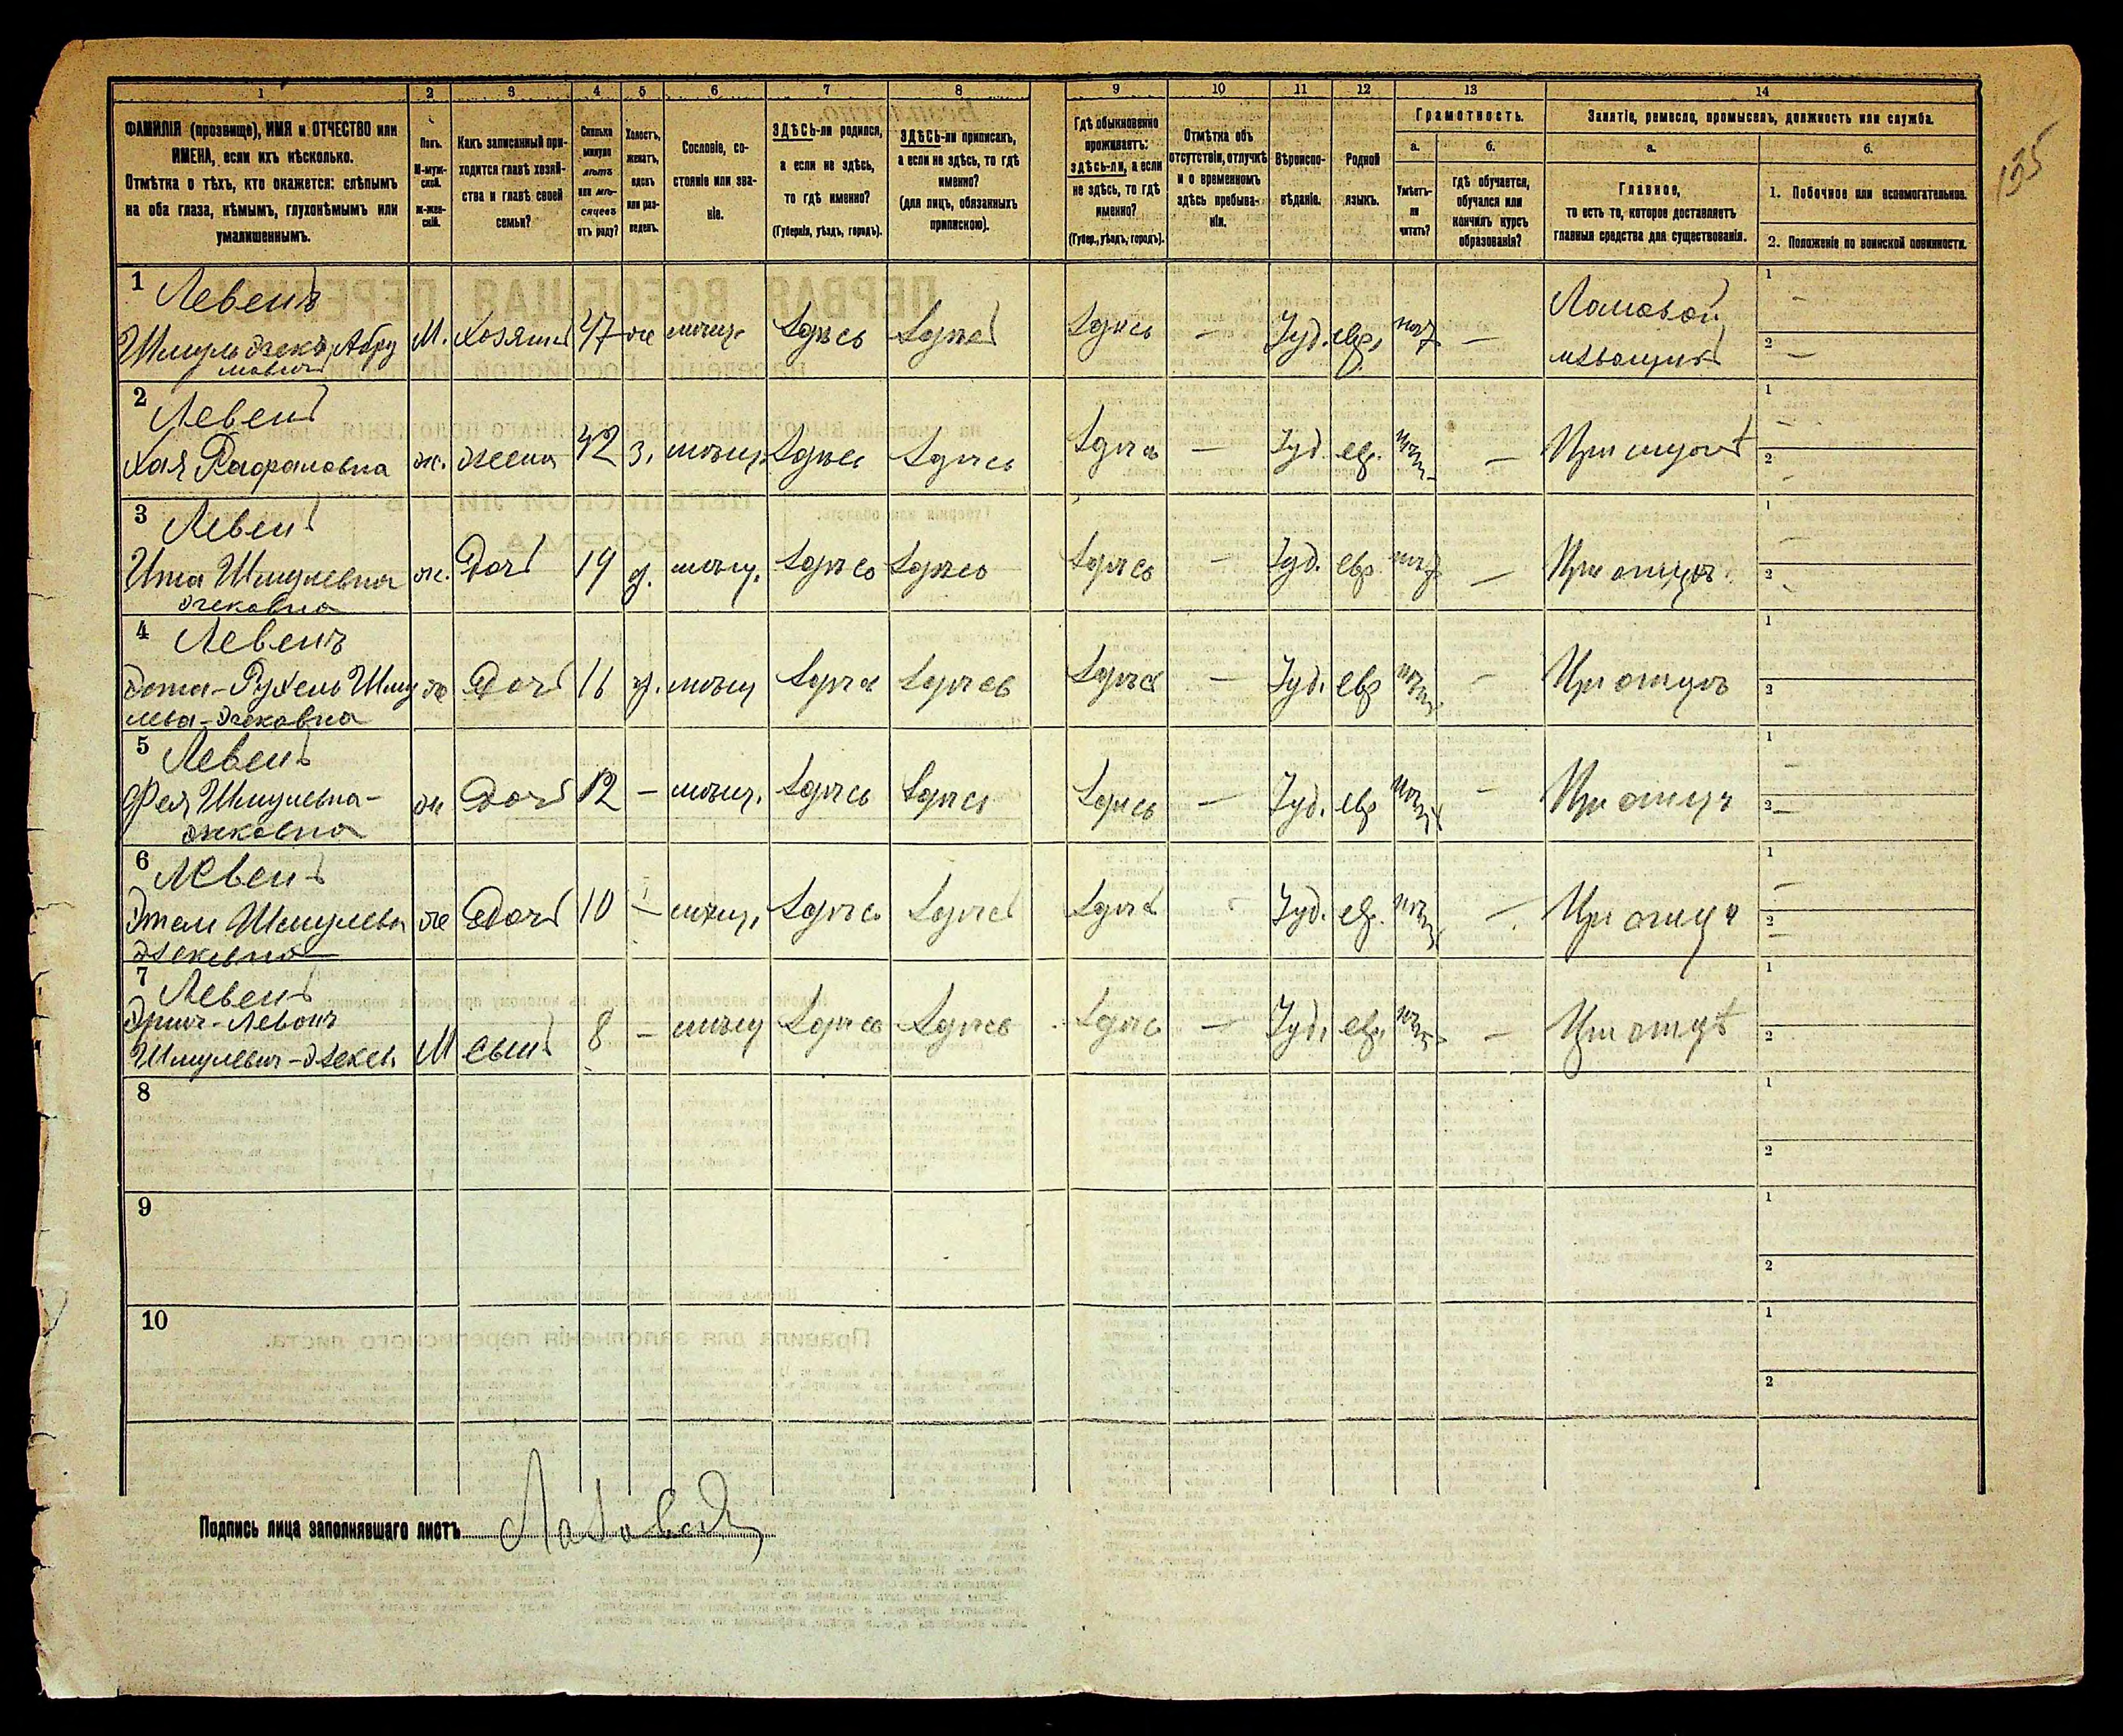 135
1 2 3 4 5 6 7 8 9 10 11 12 13 14
ФАМИЛІЯ (прозвище), ИМЯ и ОТЧЕСТВО или
ИМЕНА, если ихъ нѣсколько.
Отмѣтка о тѣхъ, кто окажется: слѣпымъ
на оба глаза, нѣмымъ, глухонѣмымъ или
умалишеннымъ.
Полъ.
М-муж-
ской.
ж-жен-
скій.
Какъ записанный при-
ходится главѣ хозяй-
ства и главѣ своей
семьи?
Сколько
минуло
лѣтъ
или мѣ-
сяцевъ
отъ роду?
Холостъ,
женатъ,
вдовъ
или раз-
веденъ.
Сословіе, со-
стояніе или зва-
ніе.
ЗДѢСЬ-ли родился,
а если не здѣсь,
то гдѣ именно?
(Губернія, уѣздъ, городъ).
ЗДѢСЬ-ли приписанъ,
а если не здѣсь, то гдѣ
именно?
(для лицъ, обязанныхъ
припискою).
Гдѣ обыкновенно
проживаетъ:
здѣсь-ли, а если
не здѣсь, то гдѣ
именно?
(Губер., уѣздъ, городъ).
Отмѣтка объ
отсутствіи, отлучкѣ
и о временномъ
здѣсь пребыва-
ніи.
Вѣроиспо-
вѣданіе.
Родной
языкъ.
Грамотность.
а.
Умѣетъ-
ли
читать?
б.
гдѣ обучается,
обучался или
кончилъ курсъ
образованія?
Занятіе, ремесло, промыселъ, должность или служба.
а.
Главное,
то есть то, которое доставляетъ
главныя средства для существованія.
б.
1. Побочное или вспомогательное.
2. Положеніе по воинской повинности.
1 Левенъ
Шмуль Абра
мовичъ М. хозяинъ 47 ж мѣщ. здѣсь здѣсь здѣсь – Іуд. евр. – Ломовой
извощикъ 1 – 2 –
2 Левенъ
Хая Рафаловна ж. жена 42 з. мѣщ. здѣсь здѣсь здѣсь – Іуд. евр. – При мужѣ 1 – 2 –
3 Левенъ
Ита Шмулевна ж. Дочь 19 д. мѣщ. здѣсь здѣсь здѣсь – Іуд. евр. – При отцѣ 1 – 2
4 Левенъ
Рухель Шму ж Дочь 16 д. мѣщ здѣсь здѣсь здѣсь – Іуд. евр – При отцѣ 1 2
5 Левенъ
Фея Шмулевна- ж Дочь 12 – мѣщ. здѣсь здѣсь здѣсь – Іуд. евр – При отцѣ 1 – 2 –
6 Левенъ
Этель Шмулевн ж Дочь 10 – мѣщ. здѣсь здѣсь здѣсь Іуд. евр. – При отцѣ 1 – 2 –
7 Левенъ
Шмулевич М сынъ 8 – мѣщ здѣсь здѣсь здѣсь – Іуд. евр. – При отцѣ 1 2
8 1 2
9 1 2
10 1 2
Подпись лица заполнявшаго листъ